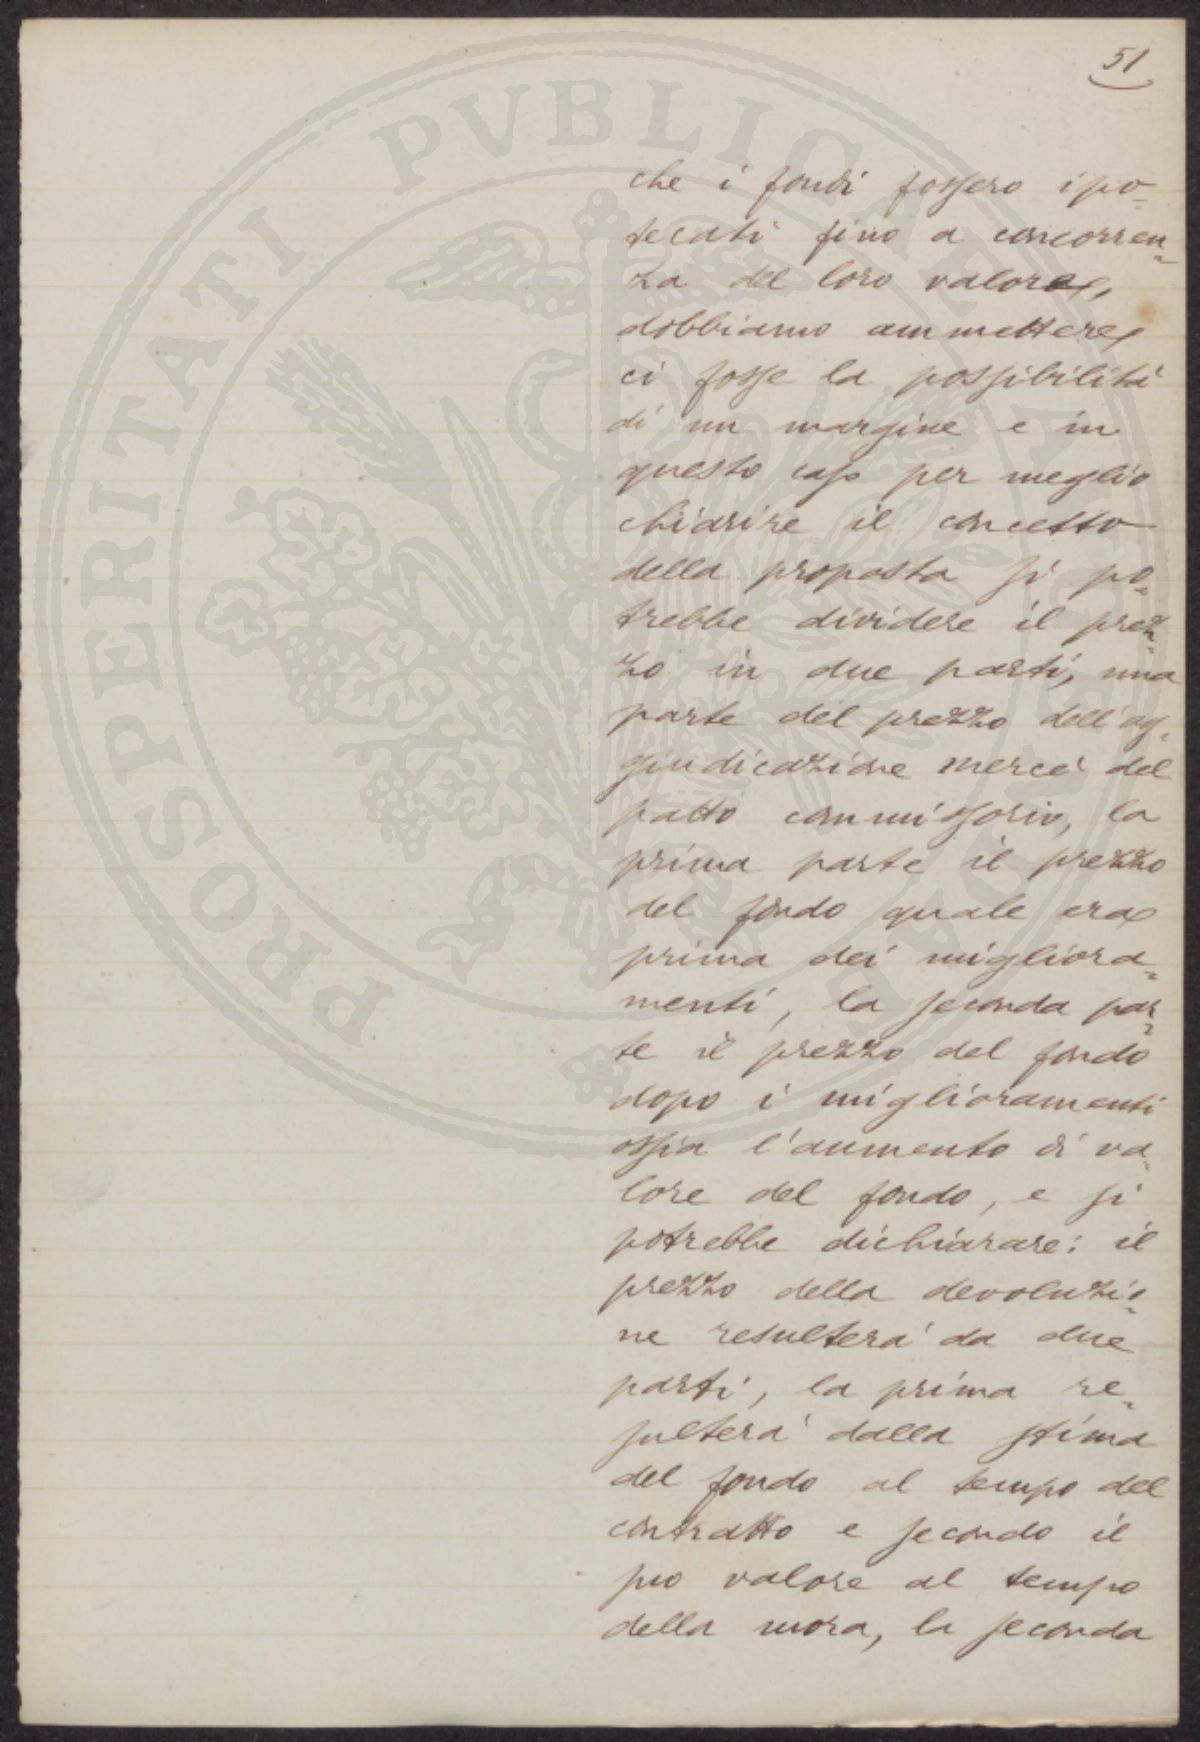 51
che i fondi fossero ipo=
tecati fino a concorren=
za del loro valore,
dobbiamo ammettere
ci fosse la possibilità
di un margine e in
questo caso per meglio
chiarire il concetto
della proposta si po=
trebbe dividere il prez=
zo in due parti, una
parte del prezzo dell'ag=
giudicazione mercé del
patto commissorio, la
prima parte il prezzo
del fondo quale era
prima dei migliora=
menti, la seconda par=
te il prezzo del fondo
dopo i miglioramenti
ossia l'aumento di va=
lore del fondo, e si
potrebbe dichiarare: il
prezzo della devoluzio=
ne resulterà da due
parti, la prima re=
sulterà dalla stima
del fondo al tempo del
contratto e secondo il
suo valore al tempo
della mora, la seconda
PROSPERITATI PVBLICAE